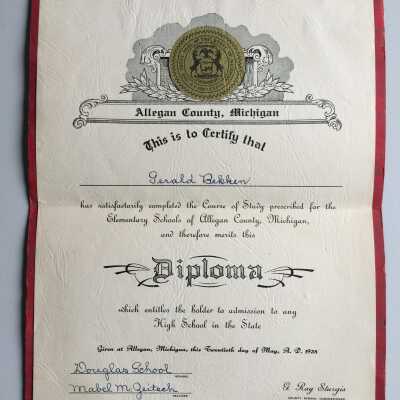 Allegan County, Michigan
This is to Certify that
Gerald Bekken
has satisfactorily completed the Course of Study prescribed for the
Elementary Schools of Allegan County, Michigan,
and therefore merits this
Diploma
which entitles the holder to admission to any
High School in the State
Given at Allegan, Michigan, this Twentieth day of May, A. D. 1938
Douglas School
SCHOOL
Mabel M.
TEACHER
G. Ray Sturgis
COUNTY SCHOOL COMMISSIONER